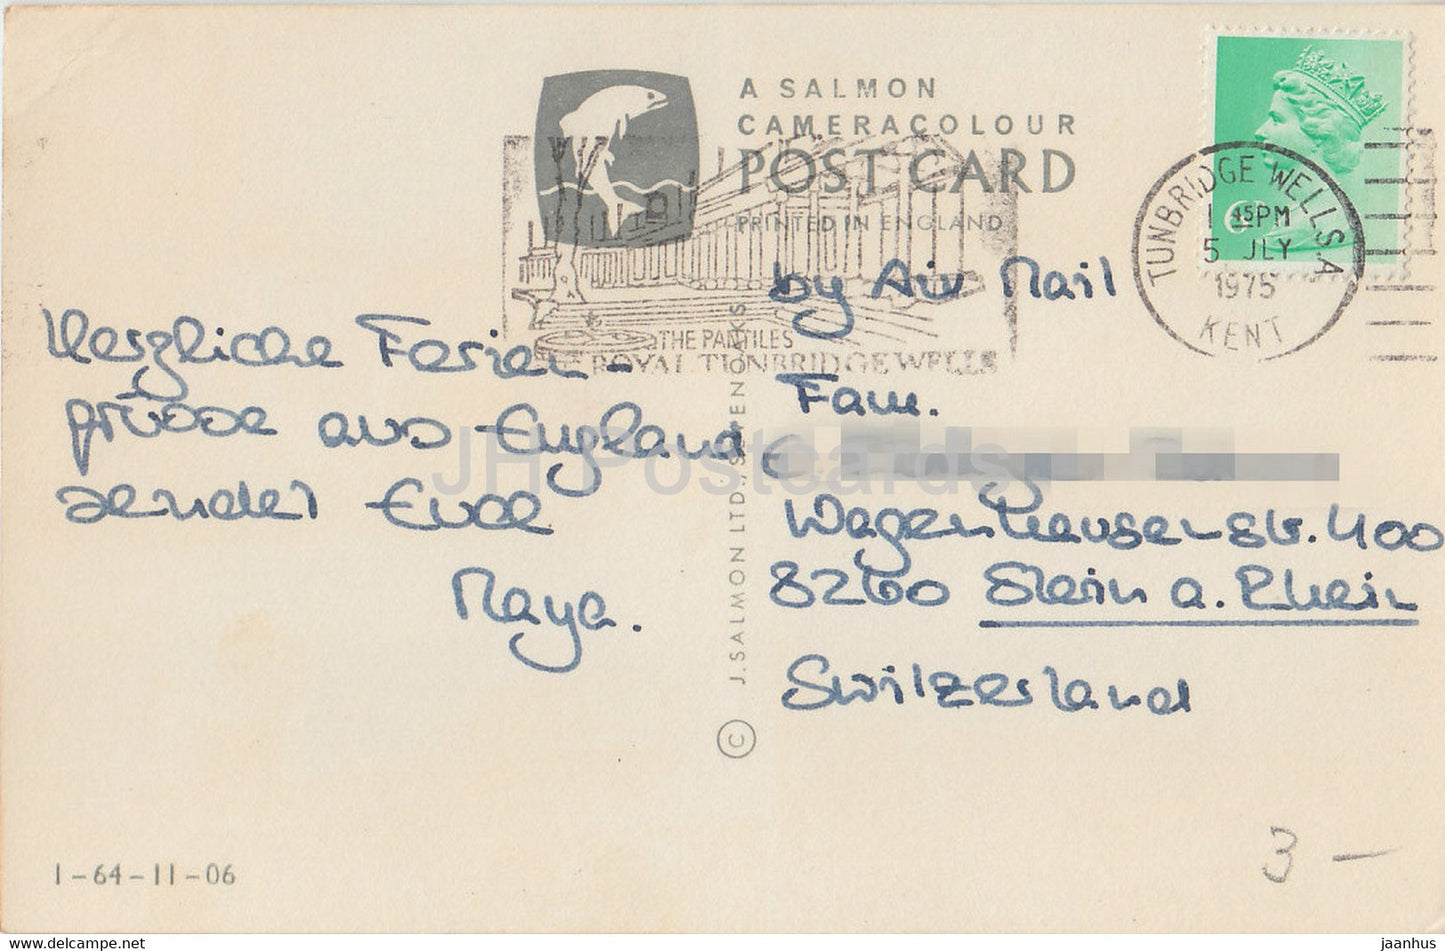 A SALMON
CAMERACOLOUR
POST CARD
PRINTED IN ENGLAND
TUNBRIDGE WELLS A
1 45PM
5 JLY
1975
KENT
THE PANTILES
ROYAL TUNBRIDGE WELLS
by Air Mail
Herzliche Ferien-
grüsse aus England
sendet Euch
Maya.
Fam.
Wagenhauserstr. 400
8260 Stein a. Rhein
Switzerland
© J. SALMON LTD./SEVENOAKS
JH Postcards
1-64-11-06
3 -
www.delcampe.net
jaanhus